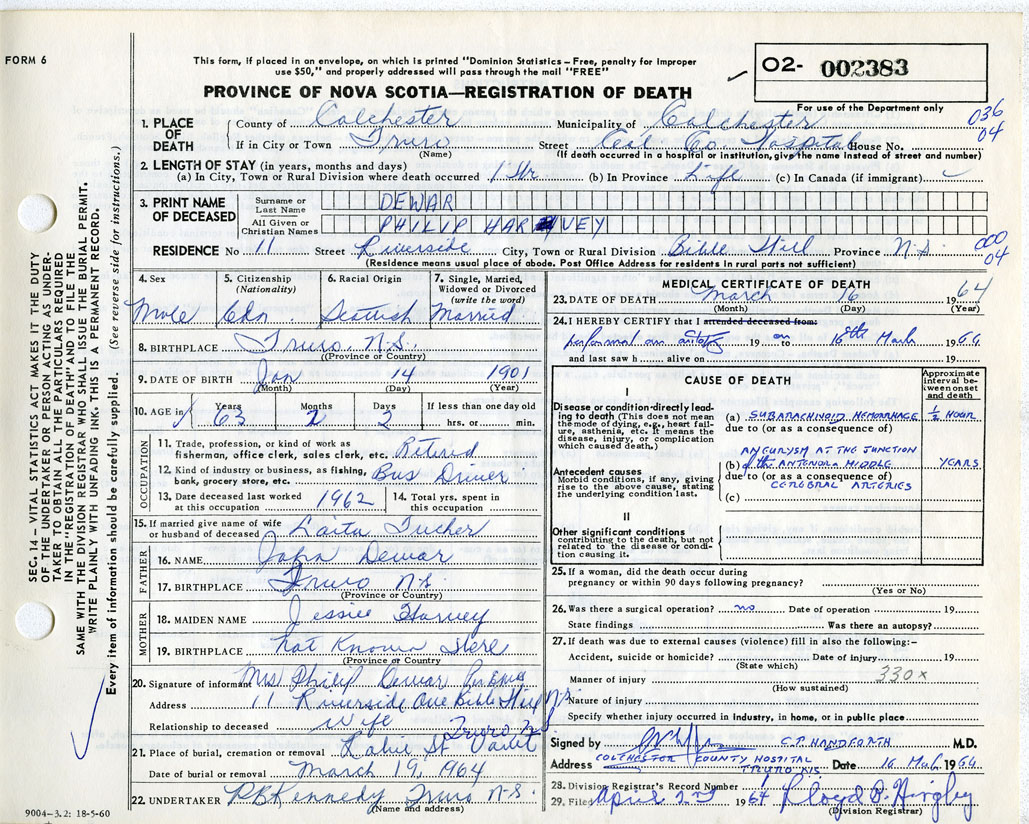 FORM 6
This form, if placed in an envelope, on which is printed "Dominion Statistics – Free, penalty for improper
use $50," and properly addressed will pass through the mail "FREE"
PROVINCE OF NOVA SCOTIA—REGISTRATION OF DEATH
02- 002383
For use of the Department only
036
04
1. PLACE OF DEATH
County of Colchester Municipality of Colchester
If in City or Town Truro Street Col. Co. Hospital House No.
(Name) (If death occurred in a hospital or institution, give the name instead of street and number)
2. LENGTH OF STAY (in years, months and days)
(a) In City, Town or Rural Division where death occurred 1 Hr (b) In Province Life (c) In Canada (if immigrant)
3. PRINT NAME OF DECEASED
Surname or Last Name DEWAR
All Given or Christian Names PHILIP HARVEY
RESIDENCE No 11 Street Riverside City, Town or Rural Division Bible Hill Province N.S.
000
04
(Residence means usual place of abode. Post Office Address for residents in rural parts not sufficient)
4. Sex
Male
5. Citizenship (Nationality)
Cdn
6. Racial Origin
Scottish
7. Single, Married, Widowed or Divorced (write the word)
Married
8. BIRTHPLACE Truro N.S.
(Province or Country)
9. DATE OF BIRTH Jan 14 1901
(Month) (Day) (Year)
10. AGE in Years Months Days If less than one day old
63 2 2 hrs. or min.
OCCUPATION
11. Trade, profession, or kind of work as
fisherman, office clerk, sales clerk, etc. Retired
12. Kind of industry or business, as fishing,
bank, grocery store, etc. Bus Driver
13. Date deceased last worked at this occupation 1962
14. Total yrs. spent in at this occupation
15. If married give name of wife
or husband of deceased Tucker
FATHER
16. NAME John Dewar
17. BIRTHPLACE Truro N.S.
(Province or Country)
MOTHER
18. MAIDEN NAME Jessie Harvey
19. BIRTHPLACE Not Known Here
(Province or Country)
20. Signature of informant Mrs Philip Dewar
Address 11 Riverside Ave Bible Hill N.S.
Relationship to deceased Wife Truro N.S.
21. Place of burial, cremation or removal Robie St
Date of burial or removal March 19, 1964
22. UNDERTAKER P.B. Kennedy Truro N.S.
(Name and address)
9004–3.2: 18-5-60
MEDICAL CERTIFICATE OF DEATH
23. DATE OF DEATH March 16 1964
(Month) (Day) (Year)
24. I HEREBY CERTIFY that I attended deceased from:
performed an 19 on to 16th March 1964
and last saw h alive on 19
CAUSE OF DEATH
Approximate interval between onset and death
I
Disease or condition directly leading to death (This does not mean the mode of dying, e.g., heart failure, asthenia, etc. It means the disease, injury, or complication which caused death.)
(a) SUBARACHNOID HEMORRHAGE ½ HOUR
due to (or as a consequence of)
Antecedent causes
Morbid conditions, if any, giving rise to the above cause, stating the underlying condition last.
ANEURYSM AT THE JUNCTION
(b) of the MIDDLE YEARS
due to (or as a consequence of)
CEREBRAL ARTERIES
(c)
II
Other significant conditions
contributing to the death, but not related to the disease or condition causing it.
25. If a woman, did the death occur during
pregnancy or within 90 days following pregnancy?
(Yes or No)
26. Was there a surgical operation? no Date of operation 19
State findings Was there an autopsy?
27. If death was due to external causes (violence) fill in also the following:–
Accident, suicide or homicide? Date of injury 19
(State which)
Manner of injury 330X
(How sustained)
Nature of injury
Specify whether injury occurred in Industry, in home, or in public place
Signed by C.P. HANDFORTH M.D.
Address COLCHESTER COUNTY HOSPITAL Date 16 Mch 1964
TRURO N.S.
28. Division Registrar's Record Number
29. Filed April 2nd 1964 Lloyd
(Division Registrar)
SEC. 14 – VITAL STATISTICS ACT MAKES IT THE DUTY
OF THE UNDERTAKER OR PERSON ACTING AS UNDER-
TAKER TO OBTAIN ALL THE PARTICULARS REQUIRED
IN THE "REGISTRATION OF DEATH" AND TO FILE THE
SAME WITH THE DIVISION REGISTRAR WHO SHALL ISSUE THE BURIAL PERMIT.
WRITE PLAINLY WITH UNFADING INK. THIS IS A PERMANENT RECORD.
Every item of information should be carefully supplied. (See reverse side for instructions.)